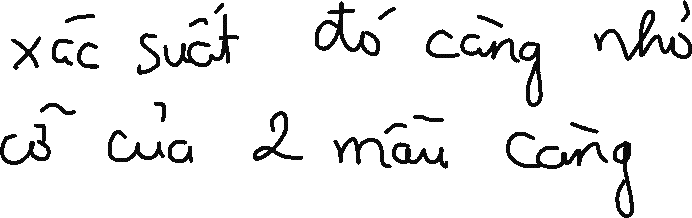 xác suất đó càng nhỏ
cỡ của 2 mẫu càng